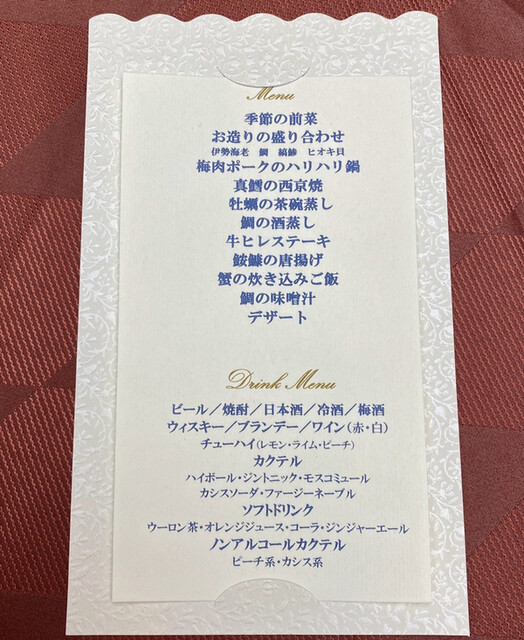 Menu
季節の前菜
お造りの盛り合わせ
伊勢海老　鯛　縞鯵　ヒオキ貝
梅肉ポークのハリハリ鍋
真鱈の西京焼
牡蠣の茶碗蒸し
鯛の酒蒸し
牛ヒレステーキ
鮟鱇の唐揚げ
蟹の炊き込みご飯
鯛の味噌汁
デザート
Drink Menu
ビール／焼酎／日本酒／冷酒／梅酒
ウィスキー／ブランデー／ワイン（赤・白）
チューハイ（レモン・ライム・ピーチ）
カクテル
ハイボール・ジントニック・モスコミュール
カシスソーダ・ファージーネーブル
ソフトドリンク
ウーロン茶・オレンジジュース・コーラ・ジンジャーエール
ノンアルコールカクテル
ピーチ系・カシス系